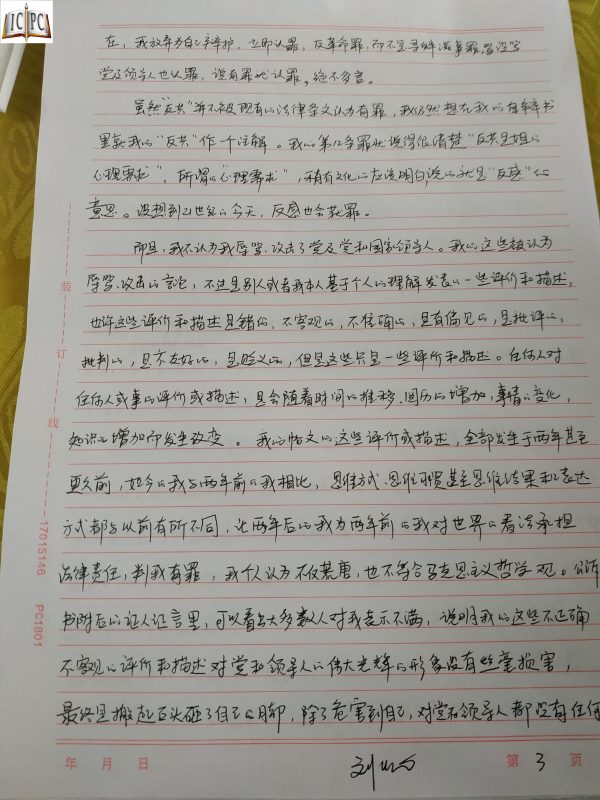 ICPC
在，我放弃为自己辩护，立即认罪，反革命罪，而不是寻衅滋事罪，
党及领导人也认罪，没有罪也认罪。绝不多言。
虽然“反共”并不被现有的法律条文认为有罪，我仍然想在我的自辩书
里就我的“反共”作一个注解。我的第12条罪状说得很清楚“反共是坦的
心理需求”，所谓的“心理需求”，稍有文化的应该明白，说的就是“反感”的
意思。没想到21世纪的今天，反感也会获罪。
而且，我不认为我辱骂、攻击了党及党和国家领导人。我的这些被认为
辱骂、攻击的言论，不过是别人或者我本人基于个人的理解发表的一些评价和描述，
也许这些评价和描述是错的，不客观的，不准确的，是有偏见的，是批评的，
批判的，是不友好的，是贬义的，但是这些只是一些评价和描述。任何人对
任何人或事的评价或描述，是会随着时间的推移、阅历的增加，事情的变化，
知识的增加而发生改变。我的帖文的这些评价或描述，全部发生于两年甚至
更久前，如今的我与两年前的我相比，思维方式、思维习惯甚至思维结果和表达
方式都与以前有所不同，让两年后的我为两年前的我对世界的看法承担
法律责任，判我有罪，我个人认为不仅荒唐，也不符合马克思主义哲学观。公诉
书附后的证人证言里，可以看出大多数人对我表示不满，说明我的这些不正确
不客观的评价和描述对党和领导人的伟大光辉的形象没有丝毫损害，
最终是搬起石头砸了自己的脚，除了危害到自己，对党和领导人都没有任何
装
订
线
17015146
PC1801
年 月 日
第 3 页